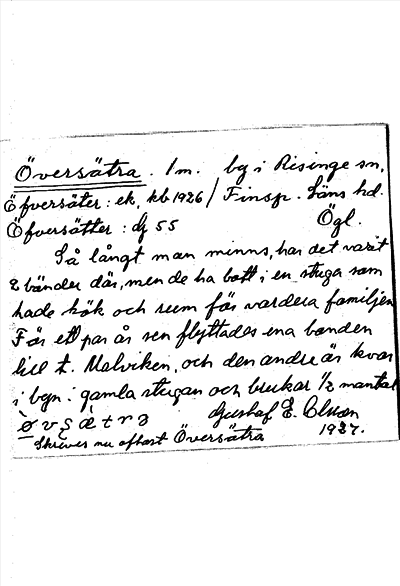 Översätra. 1 m. by i Risinge sn,
Öfversäter: ek, kb 1926 / Finsp. Läns hd.
Öfversätter: dj 55 Ögl.
Så långt man minns, har det varit
2 bönder där, men de ha bott i en stuga som
hade kök och rum för vardera familjen
För ett par år sen flyttades ena bonden
till t. Malviken, och den andre är kvar
i byn i gamla stugan och brukar 1/2 mantal
Gustaf E. Olsson
Skrives nu oftast Översätra 1937.